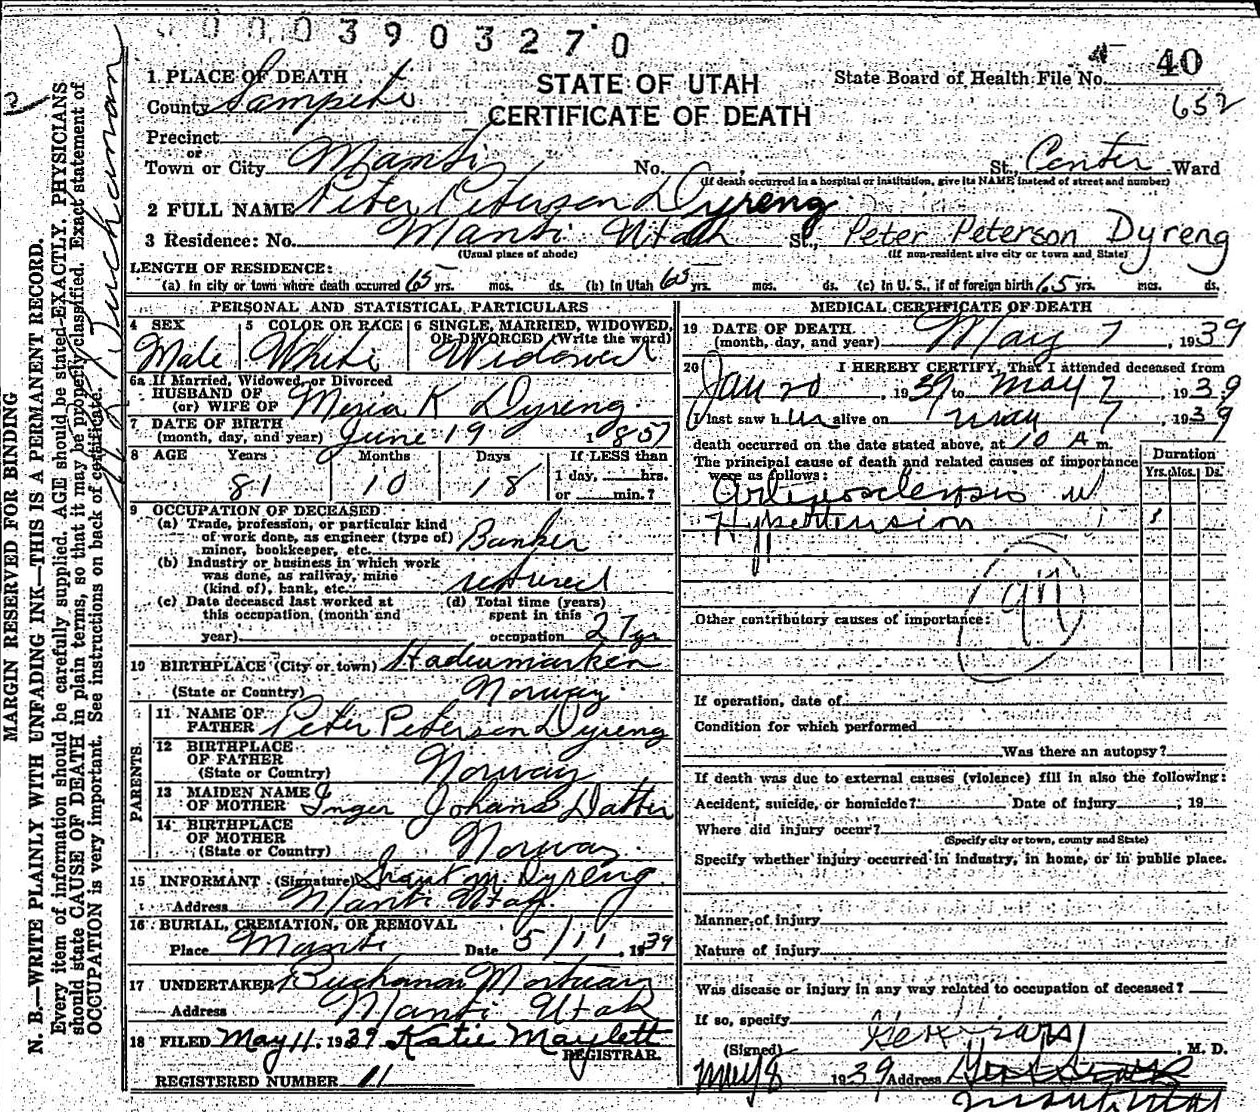 0 0 0 3 9 0 3 2 7 0
STATE OF UTAH
CERTIFICATE OF DEATH
State Board of Health File No. 40
652
1 PLACE OF DEATH
County Sanpete
Precinct
or
Town or City Manti No. St., Center Ward
(If death occurred in a hospital or institution, give its NAME instead of street and number)
2 FULL NAME Peter Peterson Dyreng
3 Residence: No. Manti Utah St., Peter Peterson Dyreng
(Usual place of abode) (If non-resident give city or town and State)
LENGTH OF RESIDENCE:
(a) In city or town where death occurred 65 yrs. mos. ds. (b) In Utah 65 yrs. mos. ds. (c) In U. S., if of foreign birth 65 yrs. mos. ds.
PERSONAL AND STATISTICAL PARTICULARS
4 SEX 5 COLOR OR RACE 6 SINGLE, MARRIED, WIDOWED,
OR DIVORCED (Write the word)
Male White Widowed
6a If Married, Widowed, or Divorced
HUSBAND OF
(or) WIFE OF Maria K Dyreng
7 DATE OF BIRTH
(month, day, and year) June 19 1857
8 AGE Years Months Days If LESS than
81 10 18 1 day, hrs.
or min.?
9 OCCUPATION OF DECEASED
(a) Trade, profession, or particular kind
of work done, as engineer (type of)
minor, bookkeeper, etc. Banker
(b) Industry or business in which work
was done, as railway, mine
(kind of), bank, etc. retired
(c) Date deceased last worked at
this occupation, (month and
year)
(d) Total time (years)
spent in this
occupation 27 yr
10 BIRTHPLACE (City or town) Hademarken
(State or Country) Norway
PARENTS.
11 NAME OF
FATHER Peter Peterson Dyreng
12 BIRTHPLACE
OF FATHER
(State or Country) Norway
13 MAIDEN NAME
OF MOTHER Inger Johans Datter
14 BIRTHPLACE
OF MOTHER
(State or Country) Norway
15 INFORMANT (Signature) Grant M. Dyreng
Address Manti Utah
16 BURIAL, CREMATION, OR REMOVAL
Place Manti Date 5/11, 1939
17 UNDERTAKER Buchanan Mortuary
Address Manti Utah
18 FILED May 11. 1939 Katie Maylett
REGISTRAR.
REGISTERED NUMBER 11
MEDICAL CERTIFICATE OF DEATH
19 DATE OF DEATH
(month, day, and year) May 7, 1939
20 I HEREBY CERTIFY, That I attended deceased from
Jan 20, 1939 to May 7, 1939
I last saw him alive on May 7, 1939
death occurred on the date stated above, at 10 A m.
The principal cause of death and related causes of importance
were as follows:
Duration
Yrs. Mos. Ds.
Arteriosclerosis w
Hypertension
97
Other contributory causes of importance:
If operation, date of
Condition for which performed
Was there an autopsy?
If death was due to external causes (violence) fill in also the following:
Accident, suicide, or homicide? Date of injury, 19
Where did injury occur?
(Specify city or town, county and State)
Specify whether injury occurred in industry, in home, or in public place.
Manner of injury
Nature of injury
Was disease or injury in any way related to occupation of deceased?
If so, specify
(Signed) M. D.
May 8 1939 Address
Manti Utah
MARGIN RESERVED FOR BINDING
N. B.—WRITE PLAINLY WITH UNFADING INK—THIS IS A PERMANENT RECORD.
Every item of information should be carefully supplied. AGE should be stated EXACTLY. PHYSICIANS
should state CAUSE OF DEATH in plain terms, so that it may be properly classified. Exact statement of
OCCUPATION is very important. See instructions on back of certificate.
Buchanan